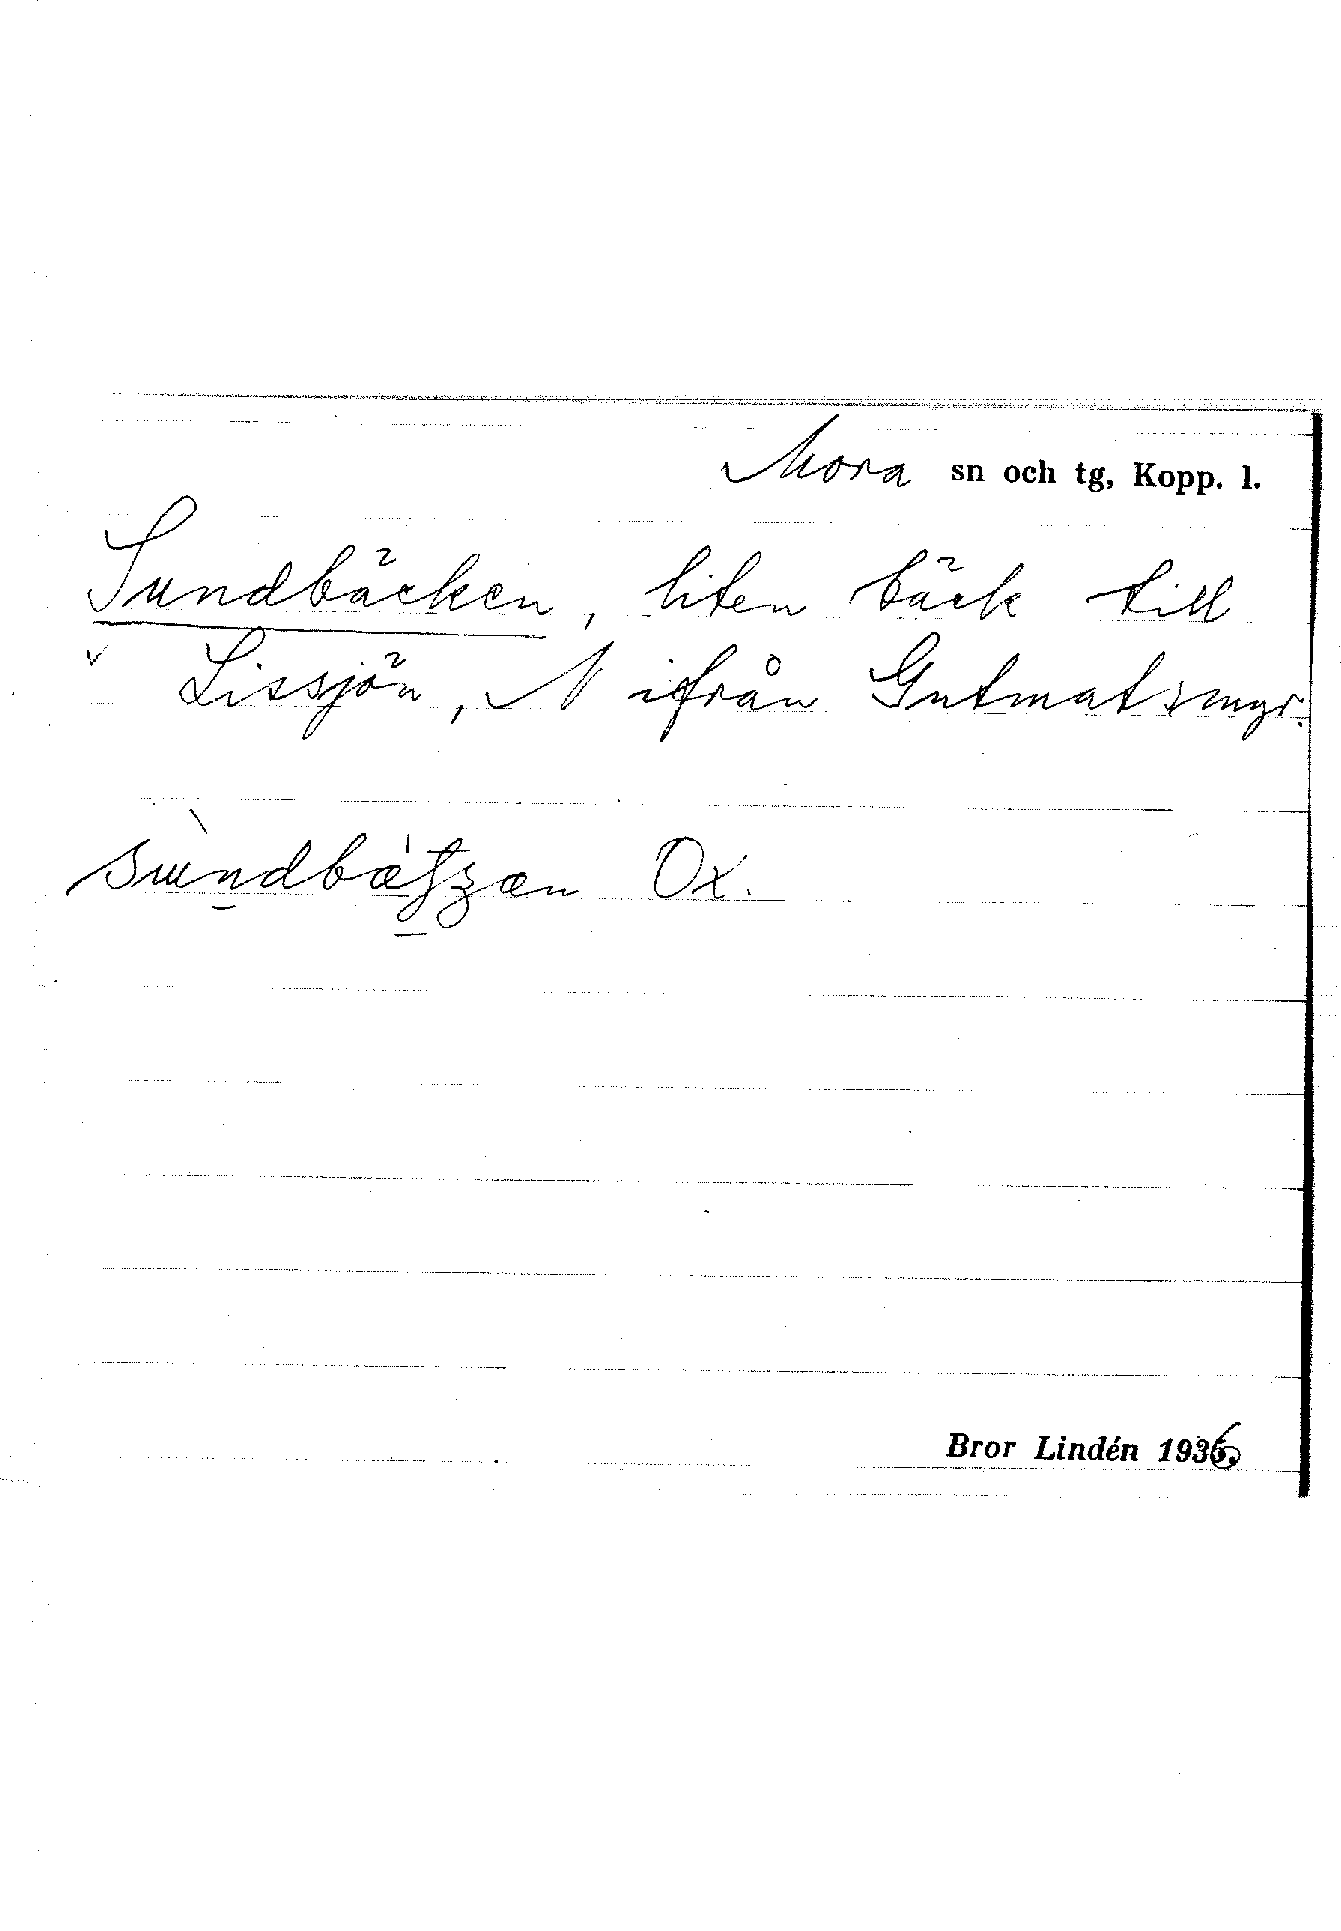 Mora sn och tg, Kopp. l.
Sundbäcken, liten bäck till
Lissjön, N ifrån Gutmatsmyr.
Ox.
Bror Lindén 1936.